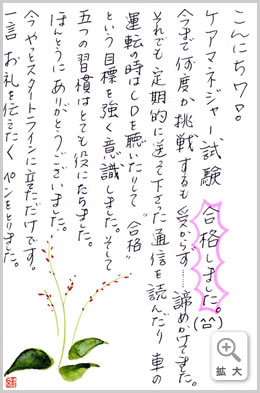 こんにちワ。
ケアマネジャー試験 合格しました。(^^)
今まで何度か挑戦するも受からず……諦めかけてました。
それでも定期的に送って下さった通信を読んだり 車の
運転の時はCDを聴いたりして “合格”
という目標を強く意識しました。そして
五つの習慣はとても役にたちました。
ほんとうにありがとうございました。
今 やっとスタートラインに立ただけです。
一言 お礼を伝えたく ペンをとりました。
拡大